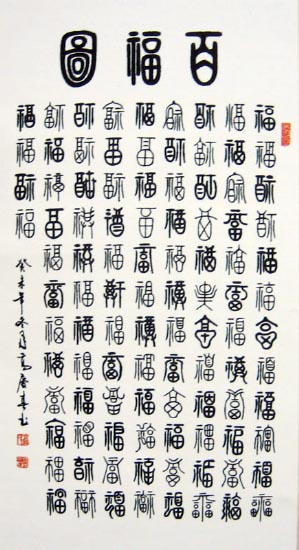 百福圖
福福福福福福福福福福福福
福福福福福福福福福福福福
福福福福福福福福福福福福
福福福福福福福福福福福福
福福福福福福福福福福福福
福福福福福福福福福福福福
福福福福福福福福福福福福
福福福福福福福福福福福福
福福福福
癸未年冬月高